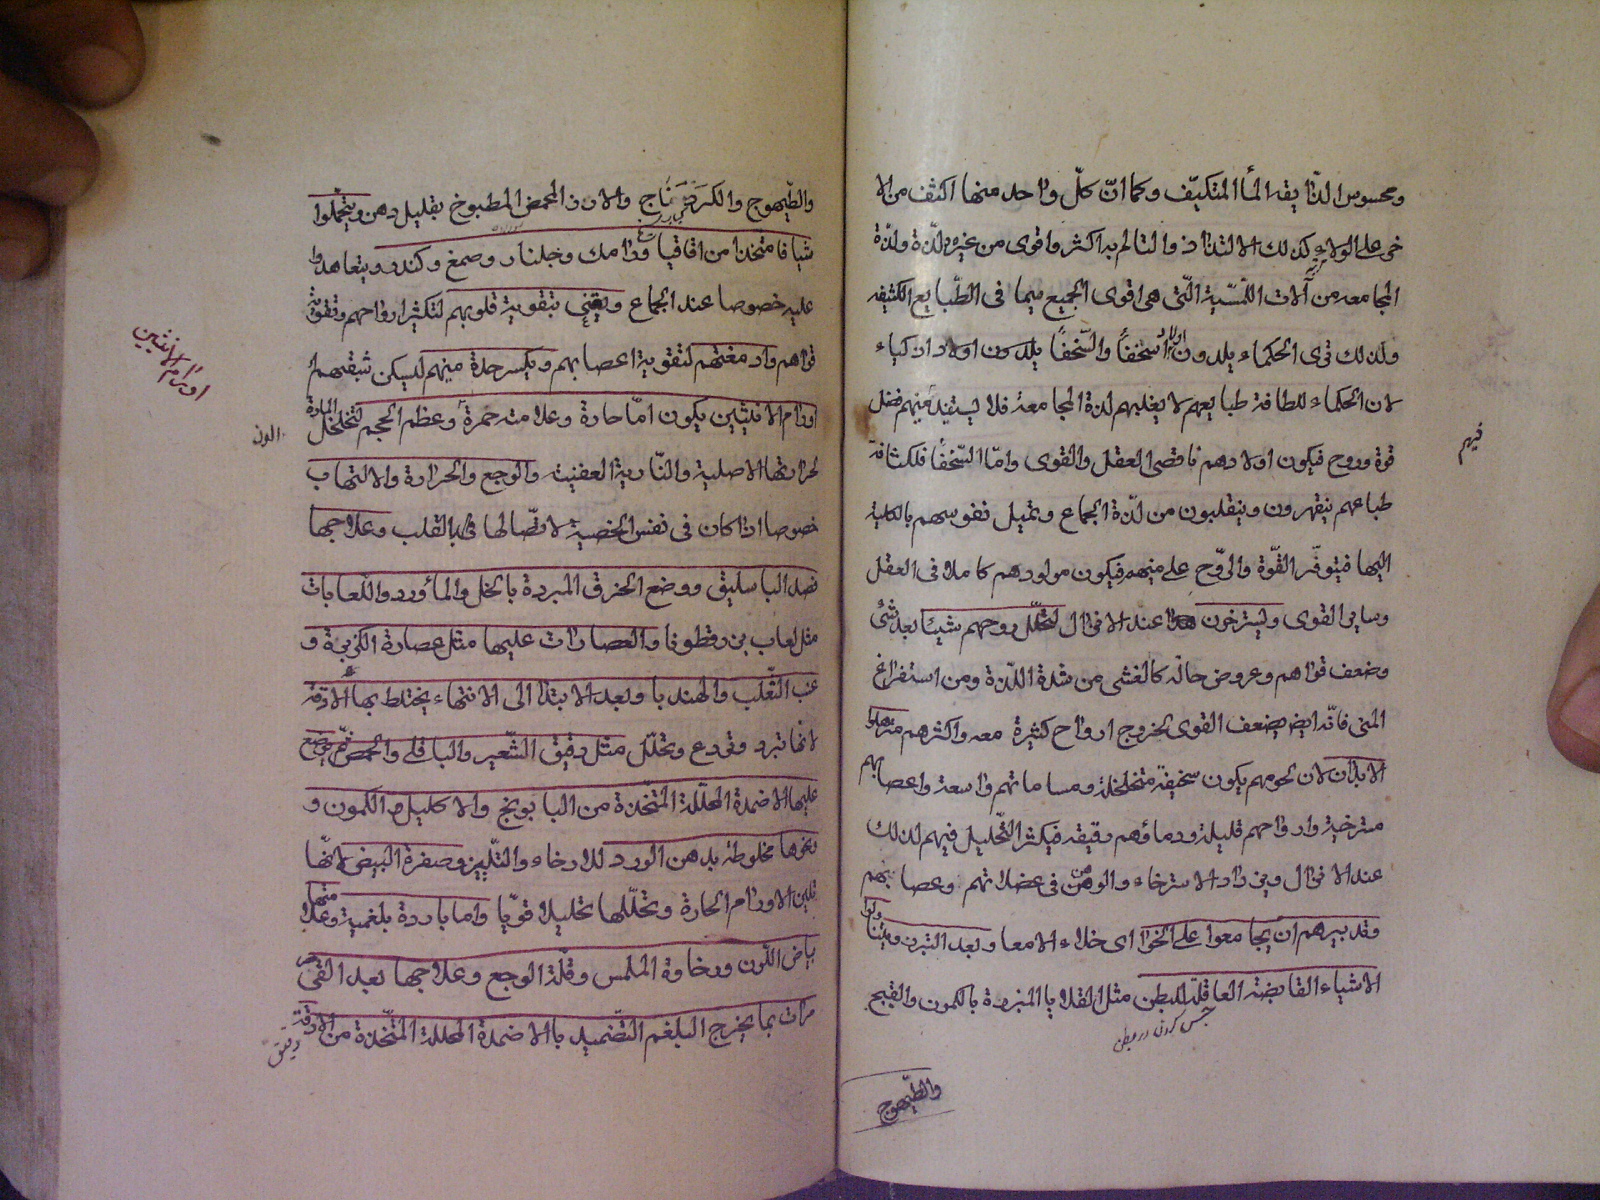 ومحسوس الذايقه الماء المتكيف وكما ان كل واحد منها اكثف من الا
خر على الولاء كذلك الالتذاذ والتالم به اكثر واقوى من غيره ولذة
المجامعه من آلات اللمسية التى هى اقوى الجميع سيما فى الطبايع الكثيفه
ولذلك ترى الحكماء يلدون اولادا سخفاً والسخفاً يلدون اولاد اذكياء
لان الحكماء للطافة طبايعهم لا يغلبهم لذة المجامعة فلا يستفيد منيهم فضل
قوة وروح فيكون اولادهم ناقصى العقل والقوى واما السخفاً فلكثافة
طباعهم ينقهرون وينقلبون من لذة الجماع وتميل نفوسهم بالكلية
اليها فيتوفر القوة والروح على منيهم فيكون مولودهم كاملا فى العقل
وساير القوى ويسترخون عند الانزال لتحلل روحهم شيئا بعد شئ
وضعف قواهم وعروض حالة كالغشى من شدة اللذة ومن استفراغ
المنى فانه ايضا يضعف القوى لخروج ارواح كثيرة معه واكثرهم مترهلوا
الابدان لان لحومهم يكون سخيفة متخلخلة ومساماتهم واسعة واعصابهم
مسترخية وارواحهم قليلة ودماؤهم رقيقه فيكثر التحليل فيهم لذلك
عند الانزال ويزداد الاسترخاء والوهن فى عضلاتهم وعصابهم
وتدبيرهم ان يجامعوا على الخوا اى خلاء الامعا وبعد التبرز ويتناولوا
الاشياء القابضة العاقلة للبطن مثل القلايا المبزرة بالكمون والقبج
حبس كردن در بطن
والطيهوج
فيهم
والطيهوج والكردناج والارز المحمض المطبوخ بقليل دهن ويتحملوا
شيافا متخذا من اقاقيا ورامك وجلنار وصمغ وكندر ويتعاهدوا
عليه خصوصا عند الجماع ويعتنى بتقوية قلوبهم لتكثير ارواحهم وتقوية
قواهم وادمغتهم لتقوية اعصابهم ويكسر حدة منيهم ليسكن شبقهم
اورام الانثيين يكون اما حارة وعلامته حمرة وعظم الحجم لتخلخل المادة
لحرارتها الاصلية والنارية العفنية والوجع والحرارة والالتهاب
خصوصا اذا كان فى نفس الخصية لاتصالها بالقلب وعلاجها
فصد الباسليق ووضع الخرق المبردة بالخل والماورد واللعابات
مثل لعاب بزرقطونا والعصارات عليها مثل عصارة الكزبرة و
عنب الثعلب والهندبا وبعد الابتدا الى الانتهاء يختلط بها الادقة
لانها تبرد وتردع وتحلل مثل دقيق الشعير والباقلى والحمص ثم يوضع
عليها الاضمدة المحللة المتخذة من البابونج والاكليل والكمون و
نحوها مخلوطة بدهن الورد للارخاء والتليين وصفرة البيض لانها
تلين الاورام الحارة وتحللها تحليلا قويا واما باردة بلغمية وعلامتها
بياض اللون ورخاوة الملمس وقلة الوجع وعلاجها بعد القى
مرات بما يخرج البلغم التضميد بالاضمدة المحللة المتخذة من الادقة
دقيق
اورام الانثيين